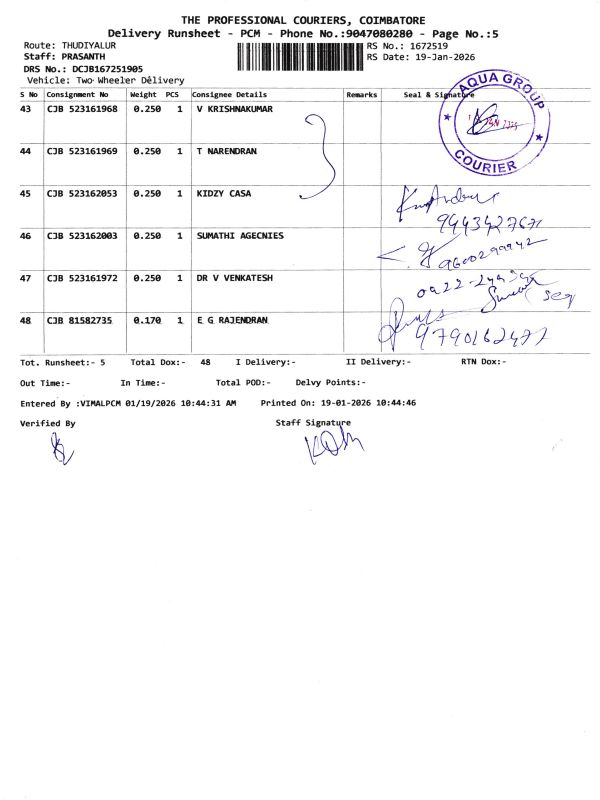 THE PROFESSIONAL COURIERS, COIMBATORE
Delivery Runsheet - PCM - Phone No.:9047080280 - Page No.:5
Route: THUDIYALUR
Staff: PRASANTH
DRS No.: DCJB167251905
Vehicle: Two Wheeler Delivery
RS No.: 1672519
RS Date: 19-Jan-2026
S No Consignment No Weight PCS Consignee Details Remarks Seal & Signature
43 CJB 523161968 0.250 1 V KRISHNAKUMAR
AQUA GROUP
COURIER
44 CJB 523161969 0.250 1 T NARENDRAN
3
45 CJB 523162053 0.250 1 KIDZY CASA
46 CJB 523162003 0.250 1 SUMATHI AGECNIES
47 CJB 523161972 0.250 1 DR V VENKATESH
48 CJB 81582735 0.170 1 E G RAJENDRAN
9790162477
Tot. Runsheet:- 5 Total Dox:- 48 I Delivery:- II Delivery:- RTN Dox:-
Out Time:- In Time:- Total POD:- Delvy Points:-
Entered By :VIMALPCM 01/19/2026 10:44:31 AM Printed On: 19-01-2026 10:44:46
Verified By Staff Signature